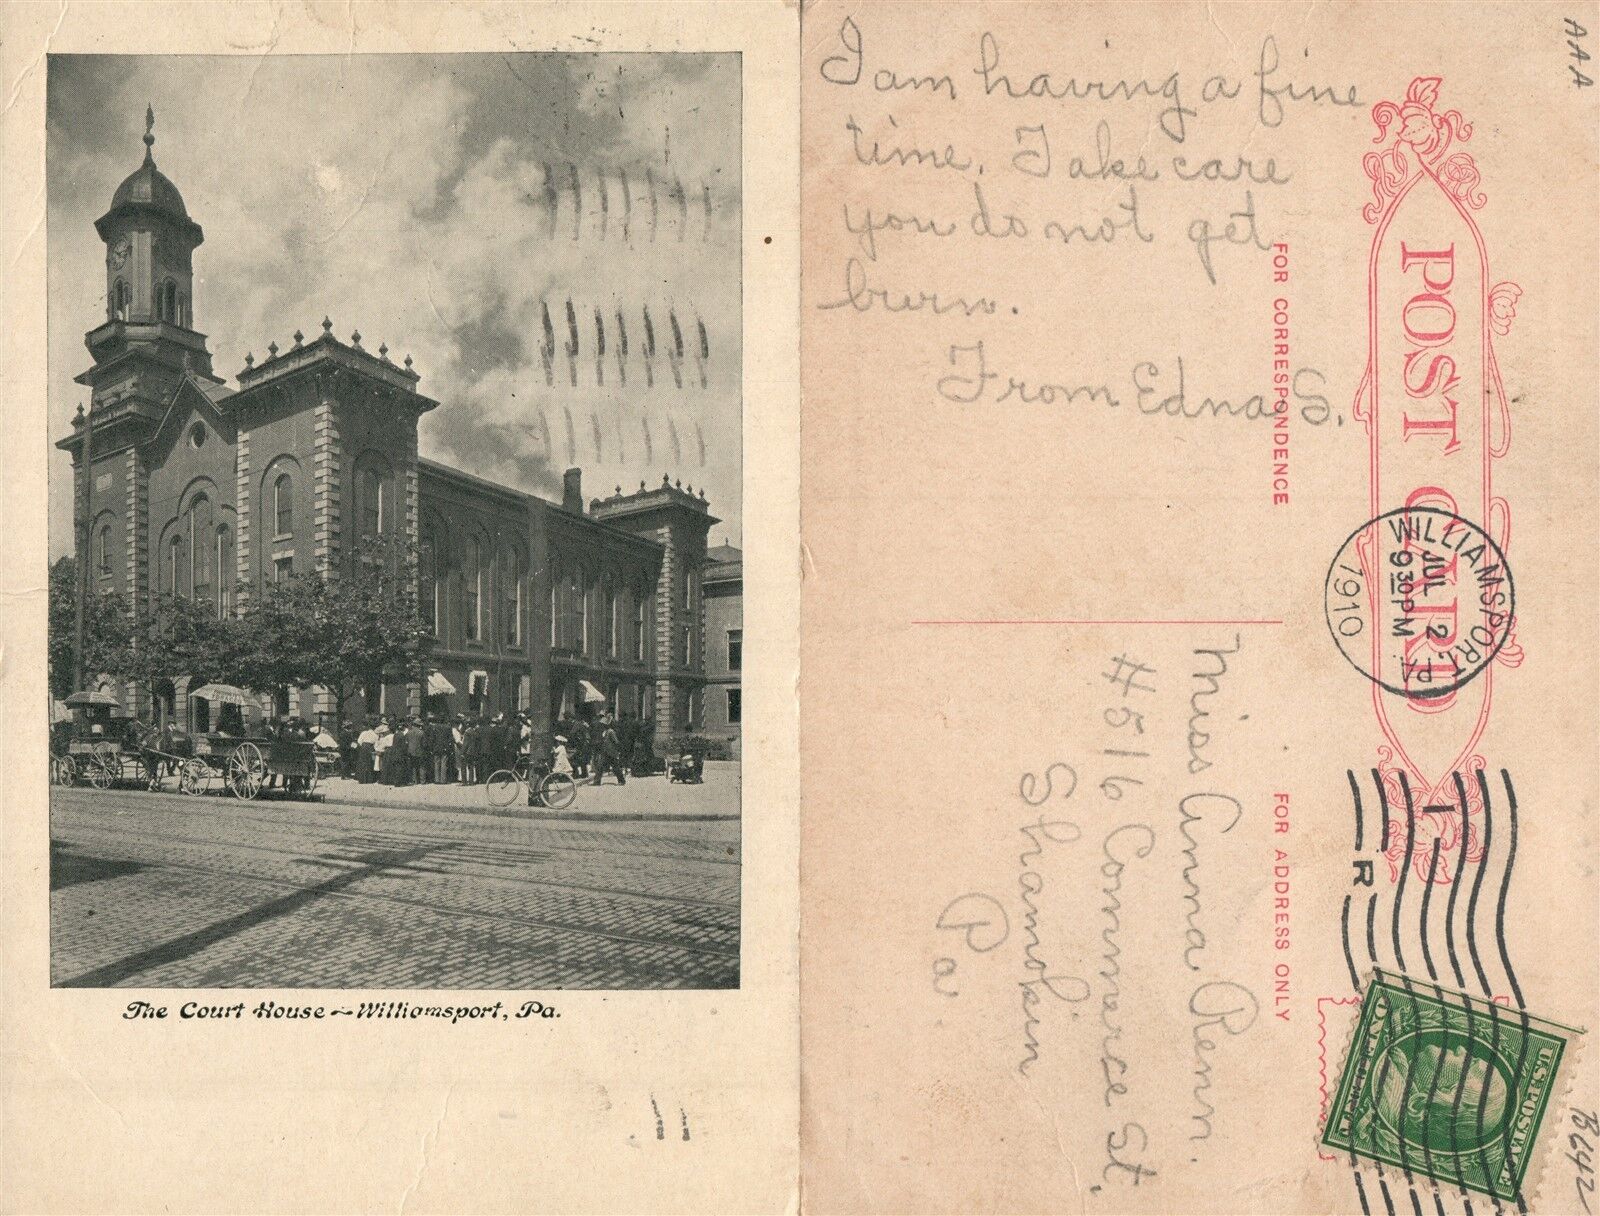 The Court House ~ Williamsport, Pa.
I am having a fine
time. Take care
you do not get
burn.
From Edna S.
FOR CORRESPONDENCE
POST CARD
WILLIAMSPORT, PA.
JUL 2
9 30 PM
1910
Miss Anna Renn.
#516 Commerce St,
Shamokin
Pa.
FOR ADDRESS ONLY
R
U.S. POSTAGE
AAA
B642